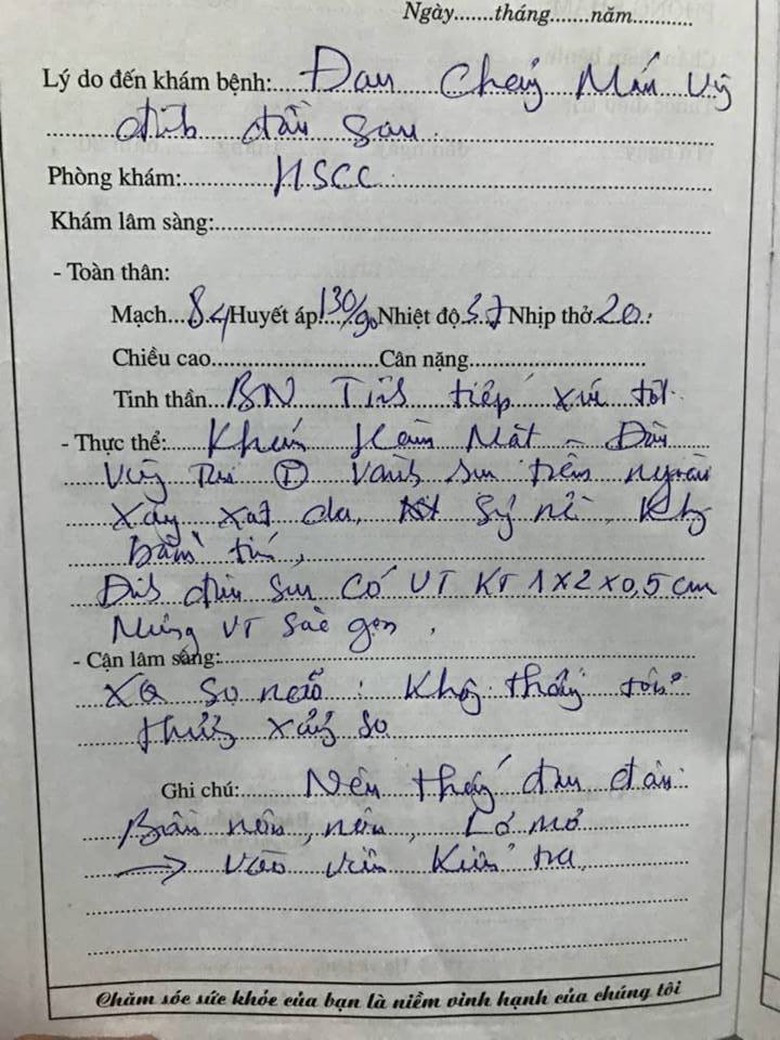 Ngày.......tháng.......năm...........
Lý do đến khám bệnh: Đau Chảy Máu Vg
đỉnh đầu sau.
Phòng khám: HSCC.
Khám lâm sàng:
- Toàn thân:
Mạch 84 Huyết áp 130/90 Nhiệt độ 37 Nhịp thở 20
Chiều cao Cân nặng
Tinh thần BN Tỉnh tiếp xúc tốt
- Thực thể: Hàm Mặt - Đầu
Vùng (T) Vành trên ngoài
Xây xát da, nề,
bầm tím,
Đỉnh đầu sau Có VT KT 1x2x0,5cm
VT sắc gọn.
- Cận lâm sàng:
XQ sọ não: Không thấy tổn
thương xương sọ
Ghi chú: Nếu thấy đau đầu
Buồn nôn, nôn, Lơ mơ
→ vào viện kiểm tra
Chăm sóc sức khỏe của bạn là niềm vinh hạnh của chúng tôi